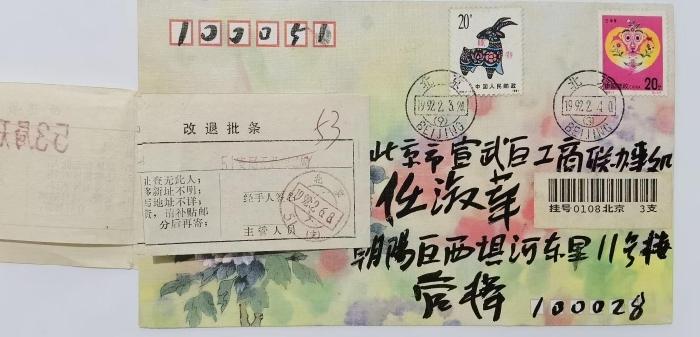 100051
20分
中国人民邮政
壬申年
20分
北京
1992.2.3.24
(9)
BEIJING
北京
1992.2.4.0
(9)
BEIJING
533
改退批条
53
址查无此人；
移新址不明；
写地址不详；
资，请补贴邮
分后再寄；
经手人签名
主管人员
北京
1992.2.6.8
(支)
北京市宣武区工商联办事组
任淑萍
挂号0108北京 3支
朝陽区西坝河东里11号楼
100028